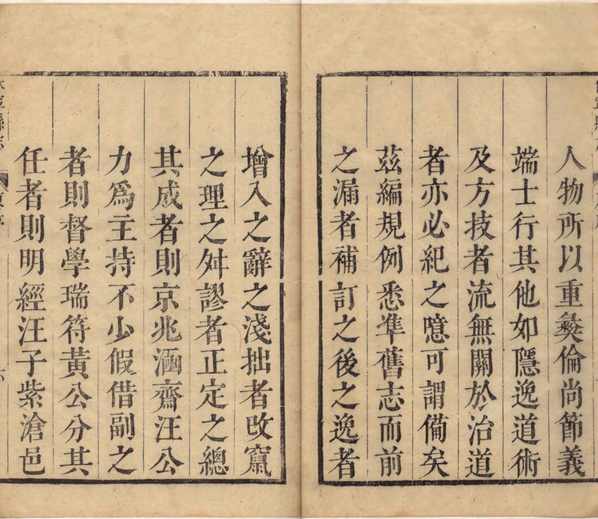 人物所以重彜倫尚節義
端士行其他如隱逸道術
及方技者流無關於治道
者亦必紀之噫可謂備矣
茲編規例悉凖舊志而前
之漏者補訂之後之逸者
增入之辭之淺拙者改竄
之理之舛謬者正定之總
其成者則京兆涵齋汪公
力爲主持不少假借副之
者則督學瑞符黃公分其
任者則明經汪子紫滄邑